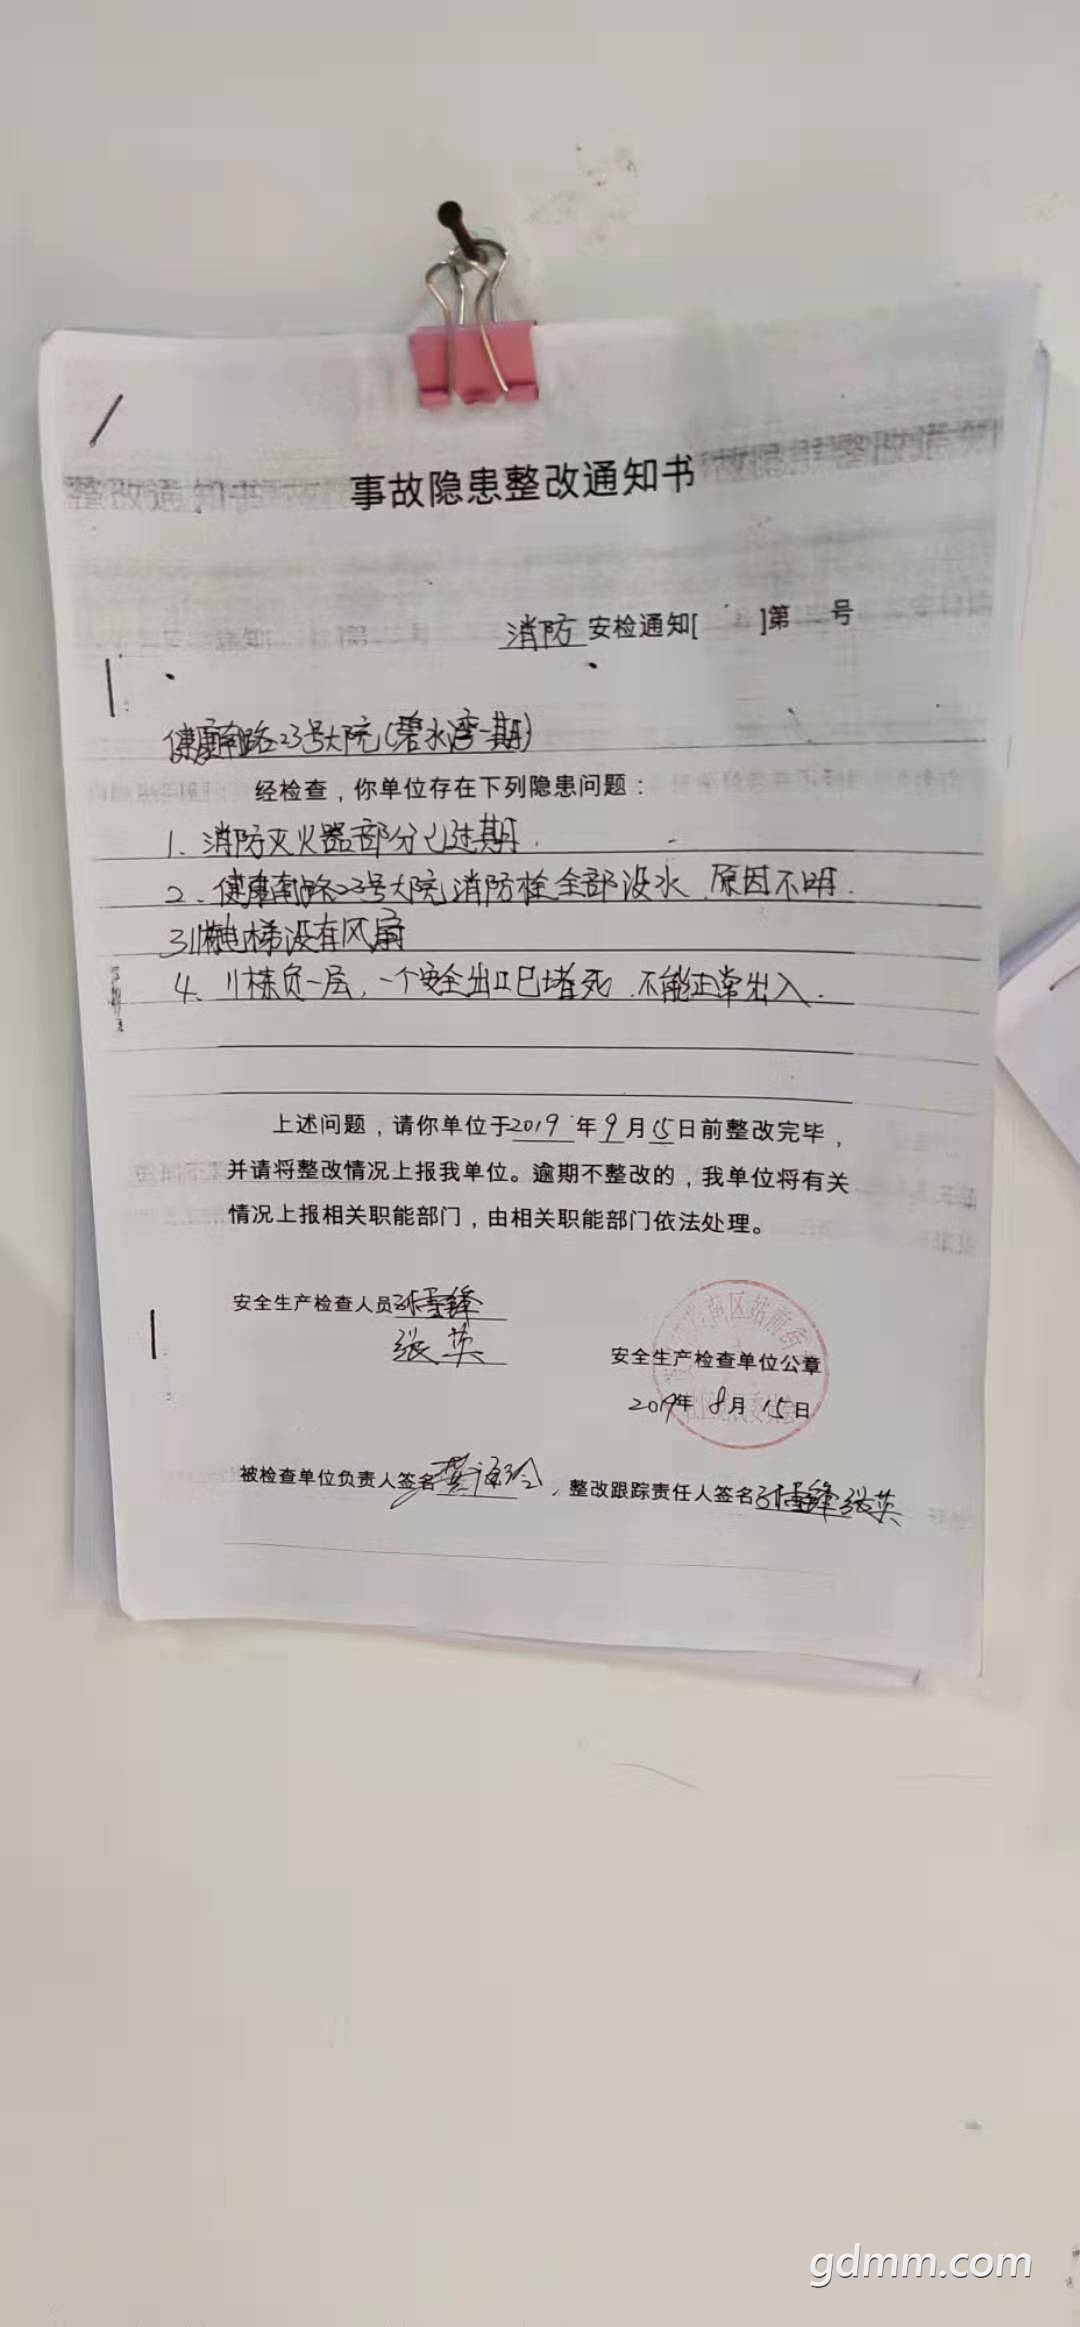 事故隐患整改通知书
消防 安检通知[ ]第 号
健康南路23号大院(碧水湾一期)
经检查，你单位存在下列隐患问题：
1、消防灭火器部分已过期.
2、健康南路23号大院消防栓全部没水.原因不明.
3、11栋电梯没有风扇
4、11栋负一层,一个安全出口已堵死.不能正常出入.
上述问题，请你单位于2019年9月15日前整改完毕，
并请将整改情况上报我单位。逾期不整改的，我单位将有关
情况上报相关职能部门，由相关职能部门依法处理。
安全生产检查人员
张英
安全生产检查单位公章
2019年8月15日
被检查单位负责人签名 ，整改跟踪责任人签名 张英
gdmm.com